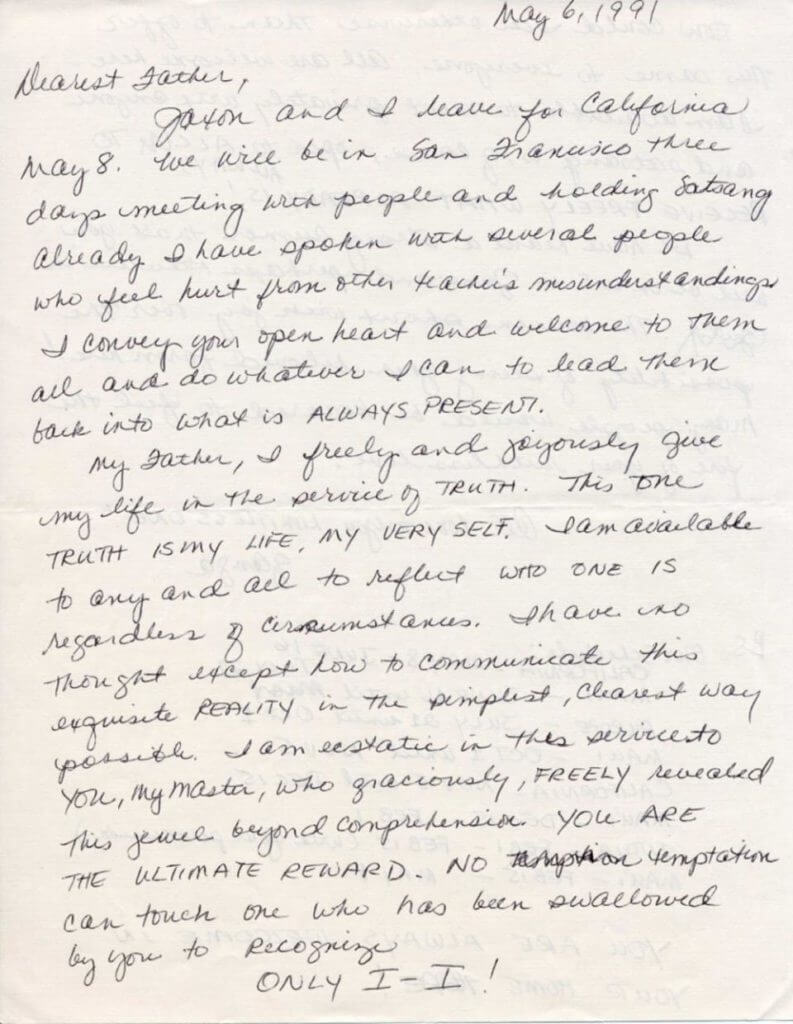 May 6, 1991
Dearest Father,
Jaxon and I leave for California
May 8. We will be in San Francisco three
days meeting with people and holding Satsang
already I have spoken with several people
who feel hurt from other teacher's misunderstandings
I convey your open heart and welcome to them
all and do whatever I can to lead them
back into what is ALWAYS PRESENT.
My Father, I freely and joyously give
my life in the service of TRUTH. This one
TRUTH IS MY LIFE, MY VERY SELF. I am available
to any and all to reflect WHO ONE IS
regardless of circumstances. I have no
thought except how to communicate this
exquisite REALITY in the simplest, clearest way
possible. I am ecstatic in this service to
YOU, my Master, who graciously, FREELY revealed
this jewel beyond comprehension. YOU ARE
THE ULTIMATE REWARD. NO temptation
can touch one who has been swallowed
by you to Recognize
ONLY I-I!